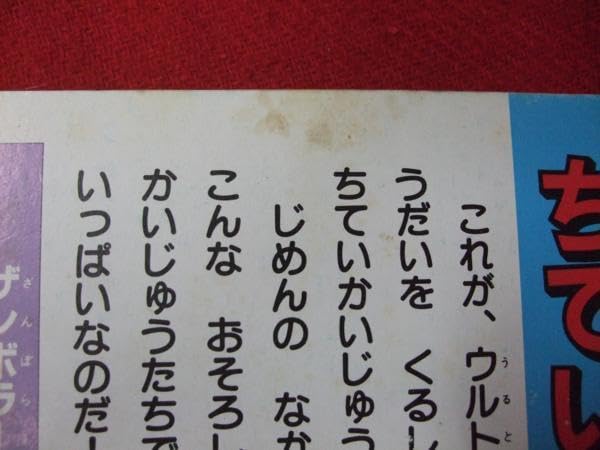 ちてい
これが、ウルト
うると
うだいを くるし
ちていかいじゅう
じめんの なか
こんな おそろし
かいじゅうたちで
いっぱいなのだ
ざんぼら
ザンボラ